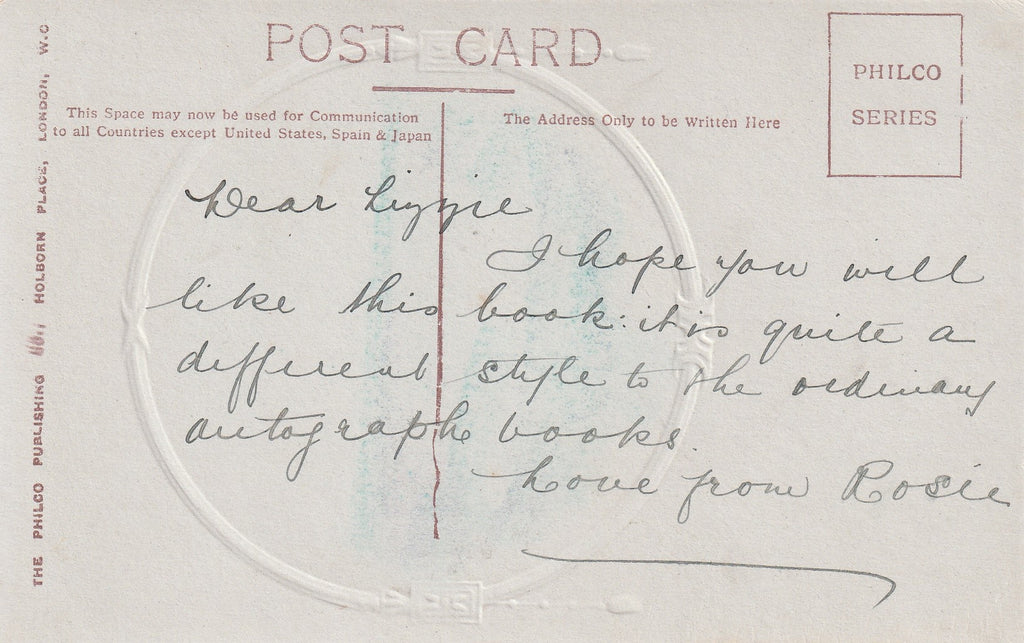 POST CARD
PHILCO
SERIES
This Space may now be used for Communication
to all Countries except United States, Spain & Japan
The Address Only to be Written Here
THE PHILCO PUBLISHING HOLBORN PLACE, LONDON, W.C
Dear Lizzie
I hope you will
like this book: it is quite a
different style to the ordinary
autographe books
Love from Rosie